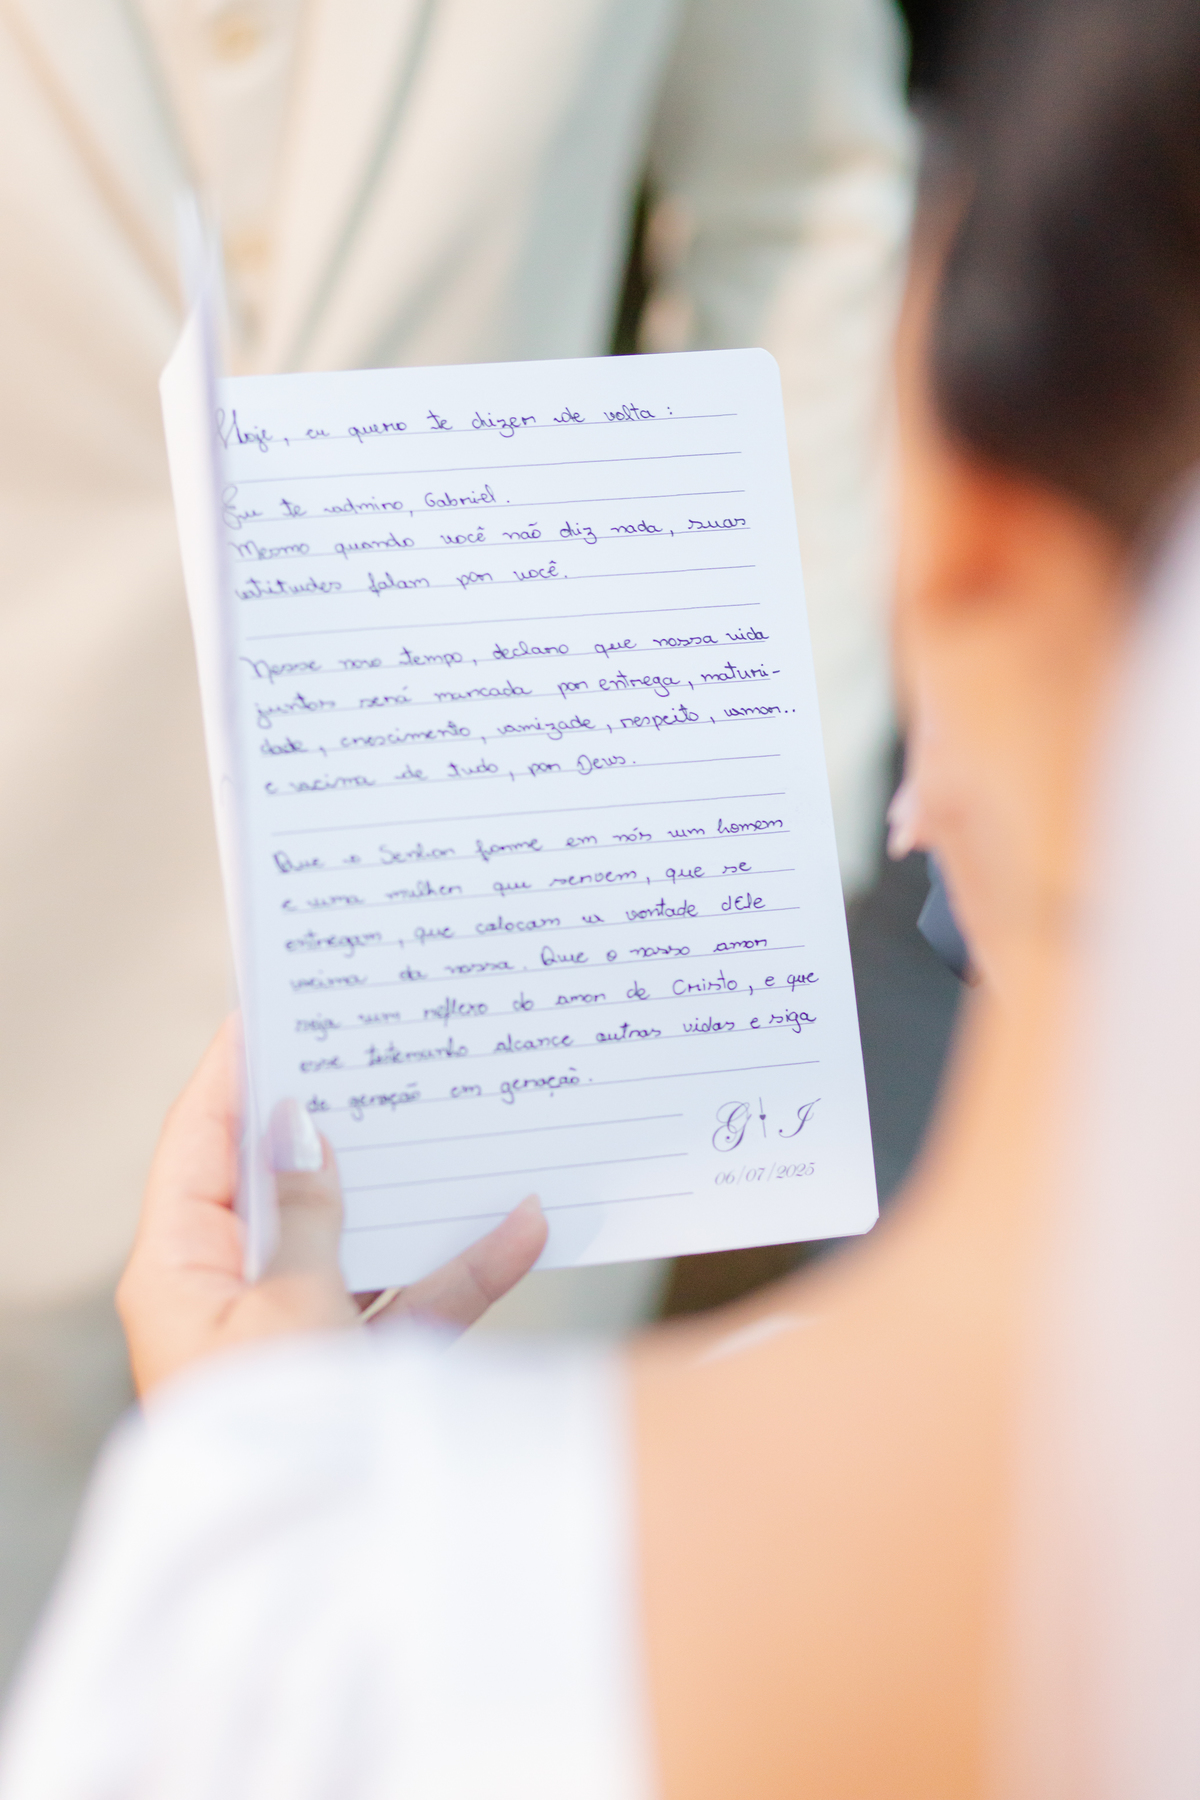 Hoje, eu quero te dizer de volta:
Eu te admiro, Gabriel.
Mesmo quando você não diz nada, suas
atitudes falam por você.
Nesse novo tempo, declaro que nossa vida
juntos será marcada por entrega, maturi-
dade, crescimento, amizade, respeito, amor..
e acima de tudo, por Deus.
Que o Senhor forme em nós um homem
e uma mulher que servem, que se
entregam, que colocam a vontade dEle
acima da nossa. Que o nosso amor
seja um reflexo do amor de Cristo, e que
esse testemunho alcance outras vidas e siga
de geração em geração.
G I
06/07/2025